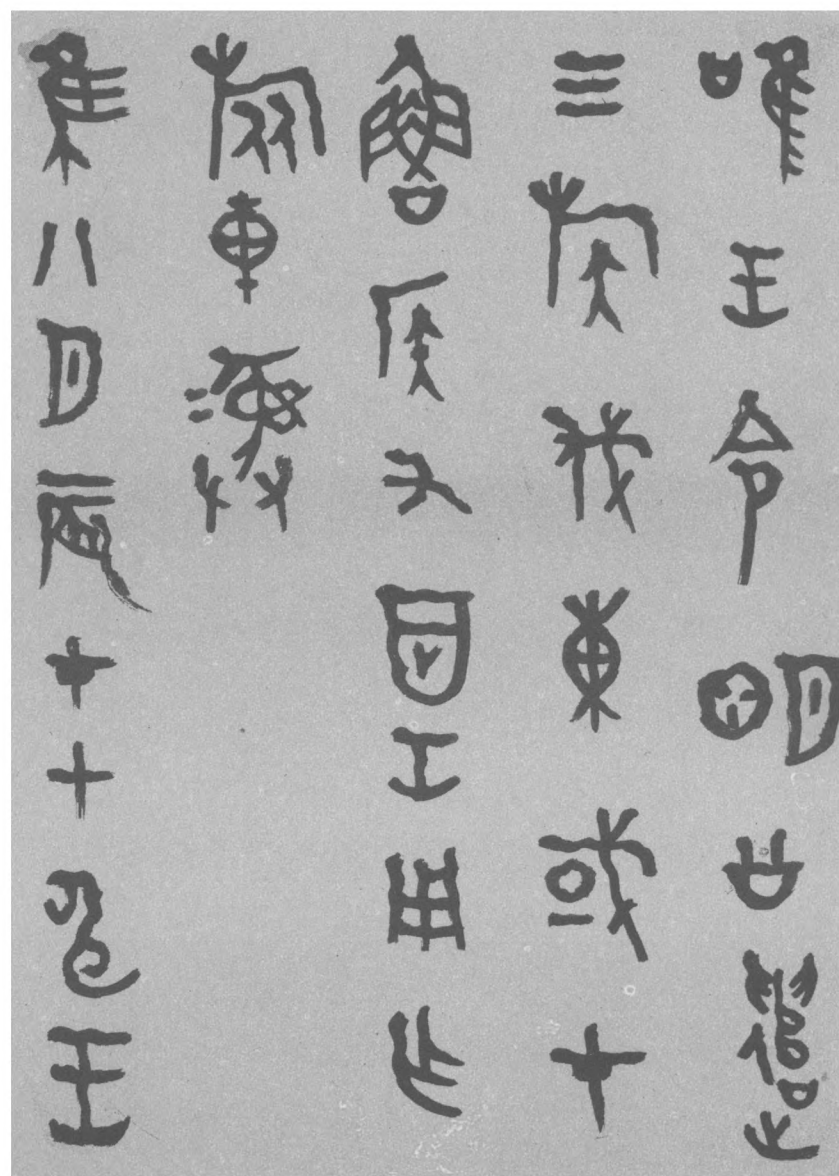 唯王令明公遣
三族伐東或才
魯侯又工用乍
旅彝
隹八月辰才甲申王